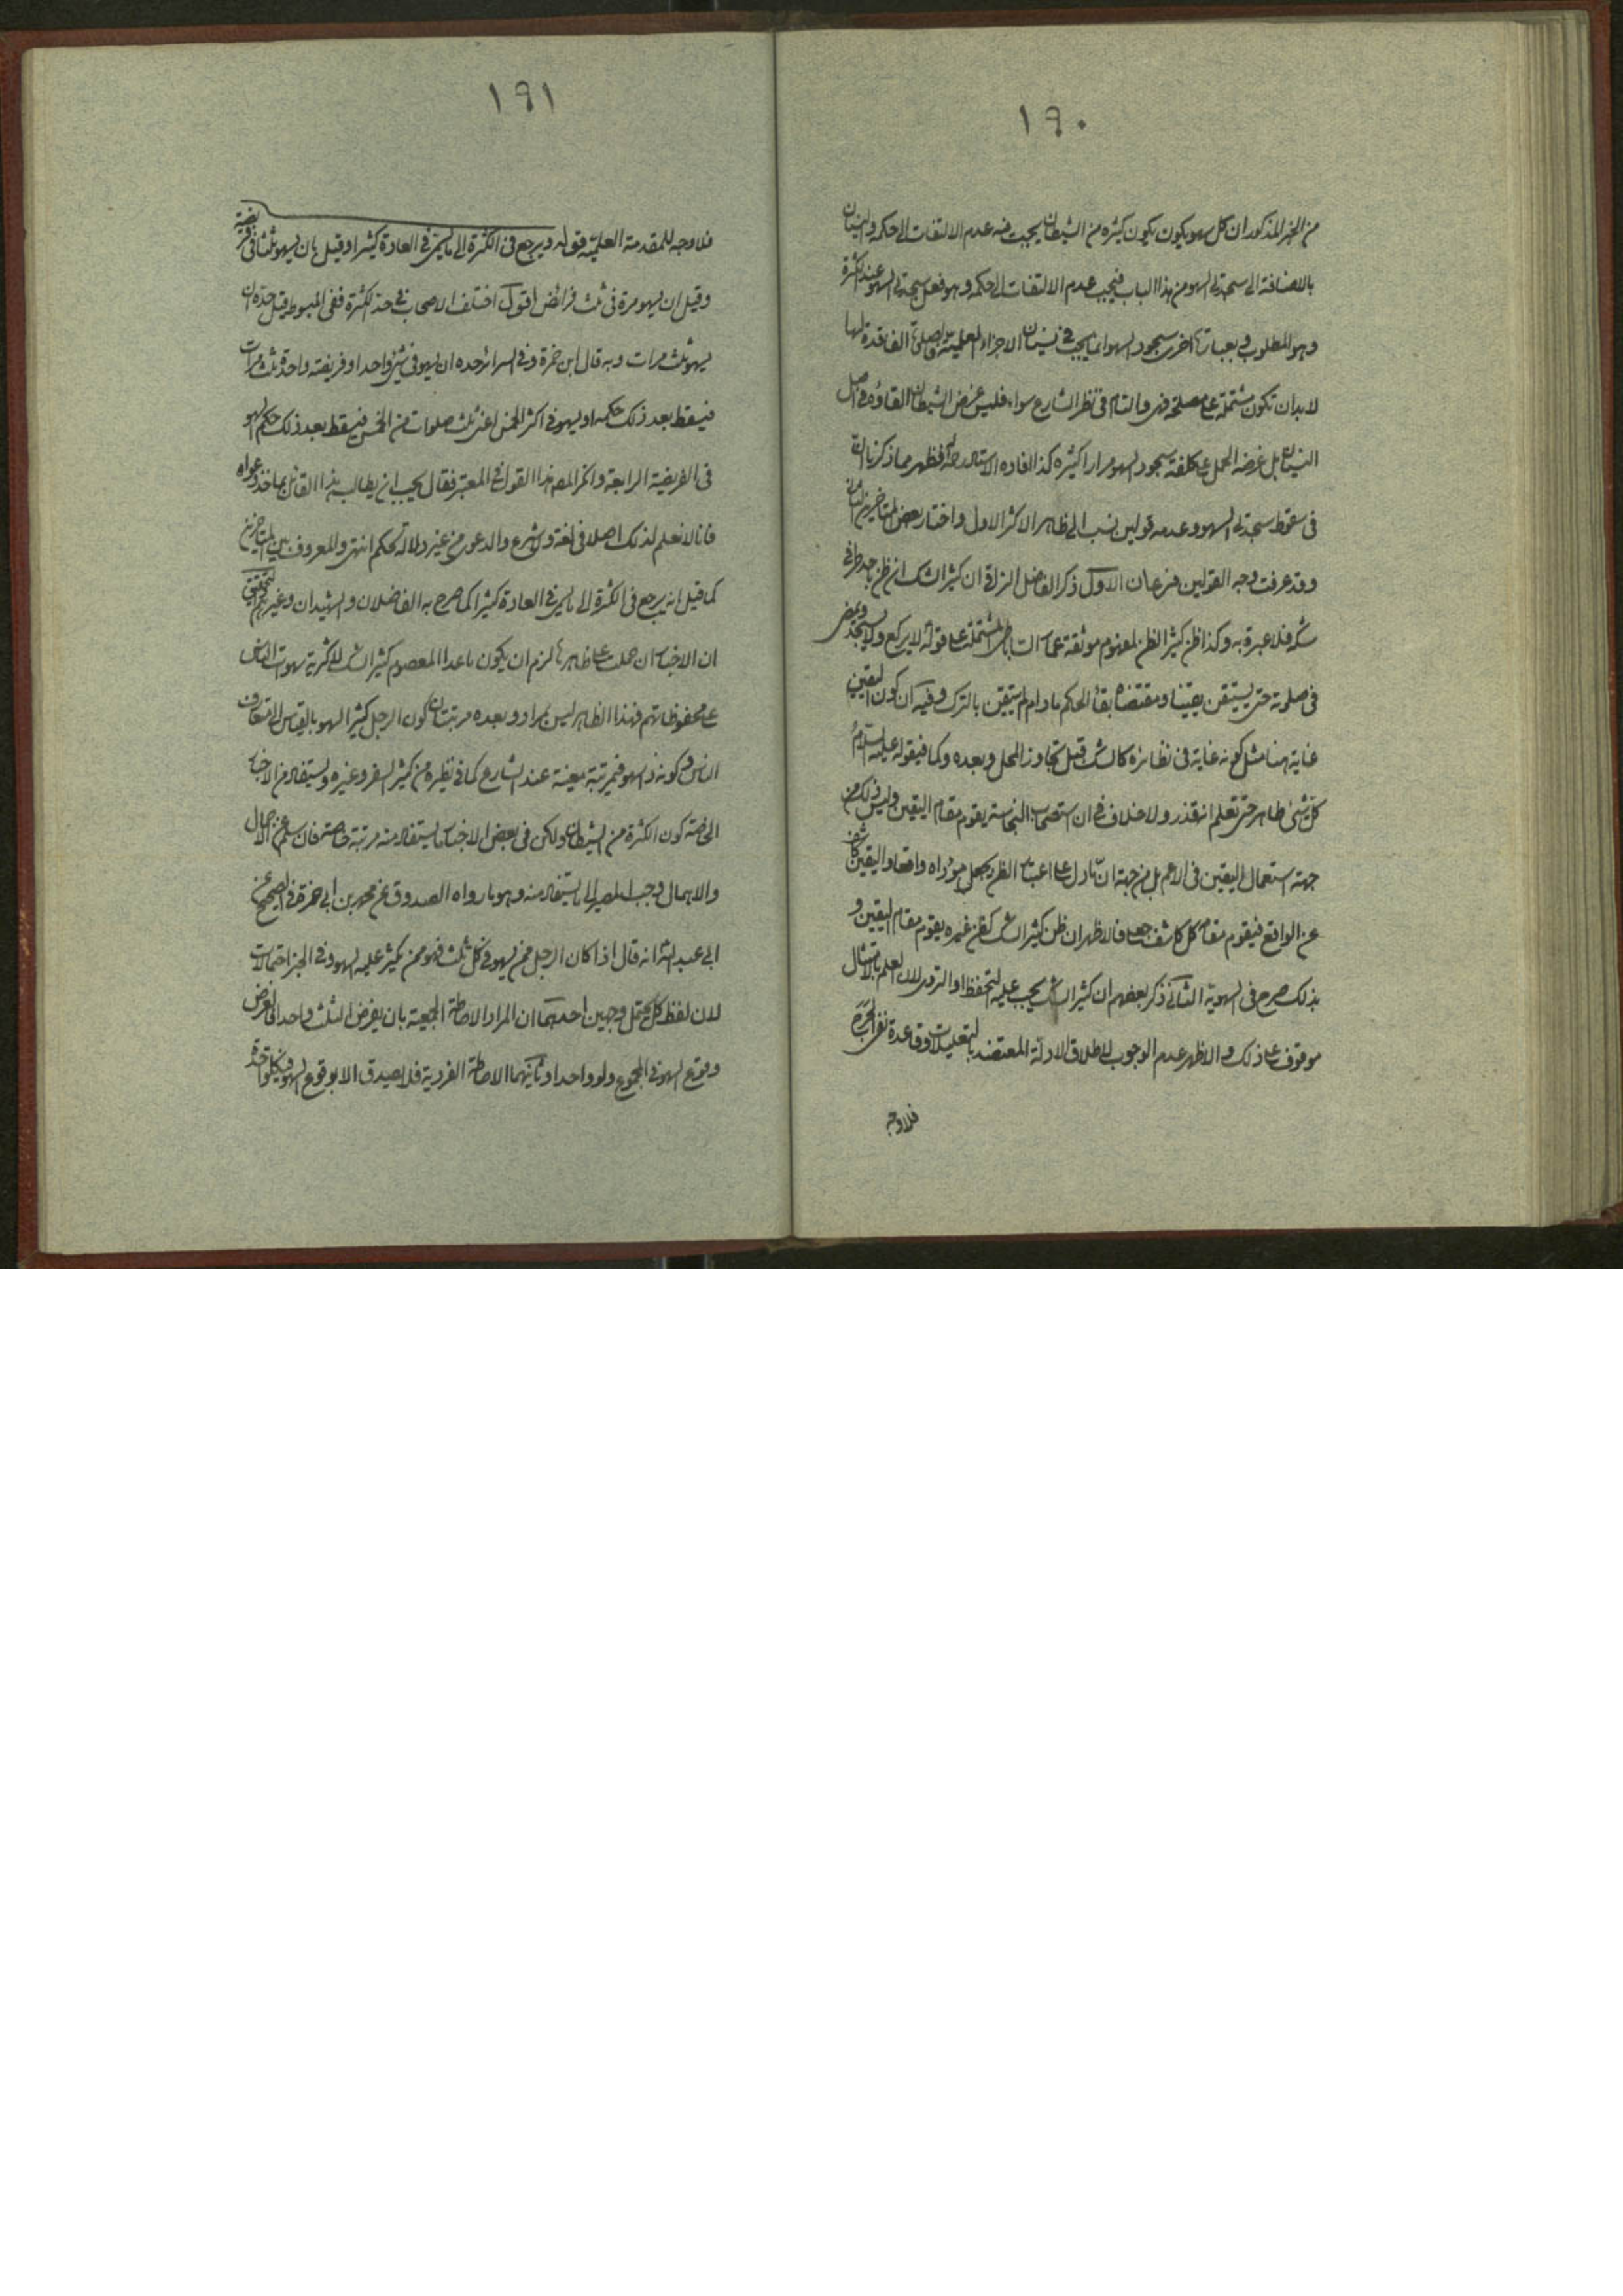 ١٩٠
من الخبر المذكور ان كل سهو يكون يكون كثيره من الشيطان يجب فيه عدم الالتفات الى حكمه والنسيان
بالاضافة الى سجدتي السهو من هذا الباب فيجب عدم الالتفات الى حكمه وهو فعل سجدتي السهو عند الكثرة
وهو المطلوب وبعبارة اخرى سجود السهو انما يجب في نسيان الاجزاء الفاقدة لها
لا بد ان تكون مشتملة على مصلحة فهى والتام فى نظر الشارع سواء فليس غرض الشيطان القاؤه في اصل
النسيان بل غرضه الحمل على كلفة سجود السهو مرارا كثيره كذا افاده الاستاد فظهر مما ذكرنا ان
فى سقوط سجدتي السهو وعدمه قولين نسب الى ظاهر الاكثر الاول واختار بعض المتاخرين الثاني
وقد عرفت وجه القولين فرعان الاول ذكر الفاضل النراقي ان كثير الشك ان ظن باحد طرفي
شكه فلا عبرة به وكذا ظن كثير الظن لمفهوم موثقة عمار المشتملة على قوله لا يركع ولا يسجد ويمضى
فى صلوته حتى يستيقن يقينا ومقتضاه بقاء الحكم ما دام لم يستيقن بالترك وفيه ان كون اليقين
غاية هنا مثل كونه غاية فى نظائره كالشك قبل تجاوز المحل وبعده وكما في قوله عليه السلام
كل شئ طاهر حتى تعلم انه قذر ولا خلاف في ان استصحاب النجاسة يقوم مقام اليقين وليس ذلك من
جهة استعمال اليقين فى الاعم بل من جهة ان ما دل على اعتبار الظن يجعل مؤداه واقعا واليقين كاشف
عن الواقع فيقوم مقامه كل كاشف جعلي فالاظهر ان ظن كثير الشك كظن غيره يقوم مقام اليقين و
بذلك صرح فى السهوية الثاني ذكر بعضهم ان كثير الشك يجب عليه التحفظ او التروي لان العلم بالامتثال
موقوف على ذلك والاظهر عدم الوجوب لاطلاق الادلة المعتضد بالتعليلات وقاعدة نفى الحرج
فلا وجه
١٩١
فلا وجه للمقدمة العلمية قوله ويرجع فى الكثرة الى ما يسمى في العادة كثيرا وقيل بان يسهو ثلثا في فريضة
وقيل ان يسهو مرة فى ثلث فرائض اقول اختلف الاصحاب في حد الكثرة ففى المبسوط قيل حده ان
يسهو ثلث مرات وبه قال ابن حمزة وفي السرائر حده ان يسهو فى شئ واحد او فريضة واحدة ثلث مرات
فيسقط بعد ذلك حكمه او يسهو في اكثر الخمس اعنى ثلث صلوات من الخمس فيسقط بعد ذلك حكم السهو
فى الفريضة الرابعة وانكر المصنف هذا القول في المعتبر فقال يجب ان يطالب هذا القائل بماخذ دعواه
فانا لا نعلم لذلك اصلا فى لغة ولا شرع والدعوى من غير دلالة تحكم انتهى والمعروف بين المتاخرين
كما قيل انه يرجع فى الكثرة الى ما يسمى في العادة كثيرا كما صرح به الفاضلان والشهيدان وغيرهم والتحقيق
ان الاخبار ان حملت على ظاهرها لزم ان يكون ما عدا المعصوم كثير الشك لاكثرية سهويات الناس
على محفوظاتهم فهذا الظاهر ليس بمراد وبعده مرتبتان كون الرجل كثير السهو بالقياس الى متعارف
الناس وكونه ذا سهو في مرتبة معينة عند الشارع كما في نظيره من كثير السفر وغيره ويستفاد من الاخبار
الخاصة كون الكثرة من الشيطان ولكن فى بعض الاخبار ما يستفاد منه مرتبة خاصة فان سلم عن الاجمال
والاهمال وجب المصير الى ما يستفاد منه وهو ما رواه الصدوق عن محمد بن ابي حمزة في الصحيح عن
ابى عبد الله انه قال اذا كان الرجل ممن يسهو في كل ثلث فهو ممن يكثر عليه السهو وفي الخبر احتمالات
لان لفظ كل يحتمل وجهين احدهما ان المراد الاحاطة الجمعية بان يفرض الثلث واحدا فالغرض
وقوع السهو في المجموع ولو واحدا وثانيهما الاحاطة الفردية فلا يصدق الا بوقوع السهو في كل واحدة